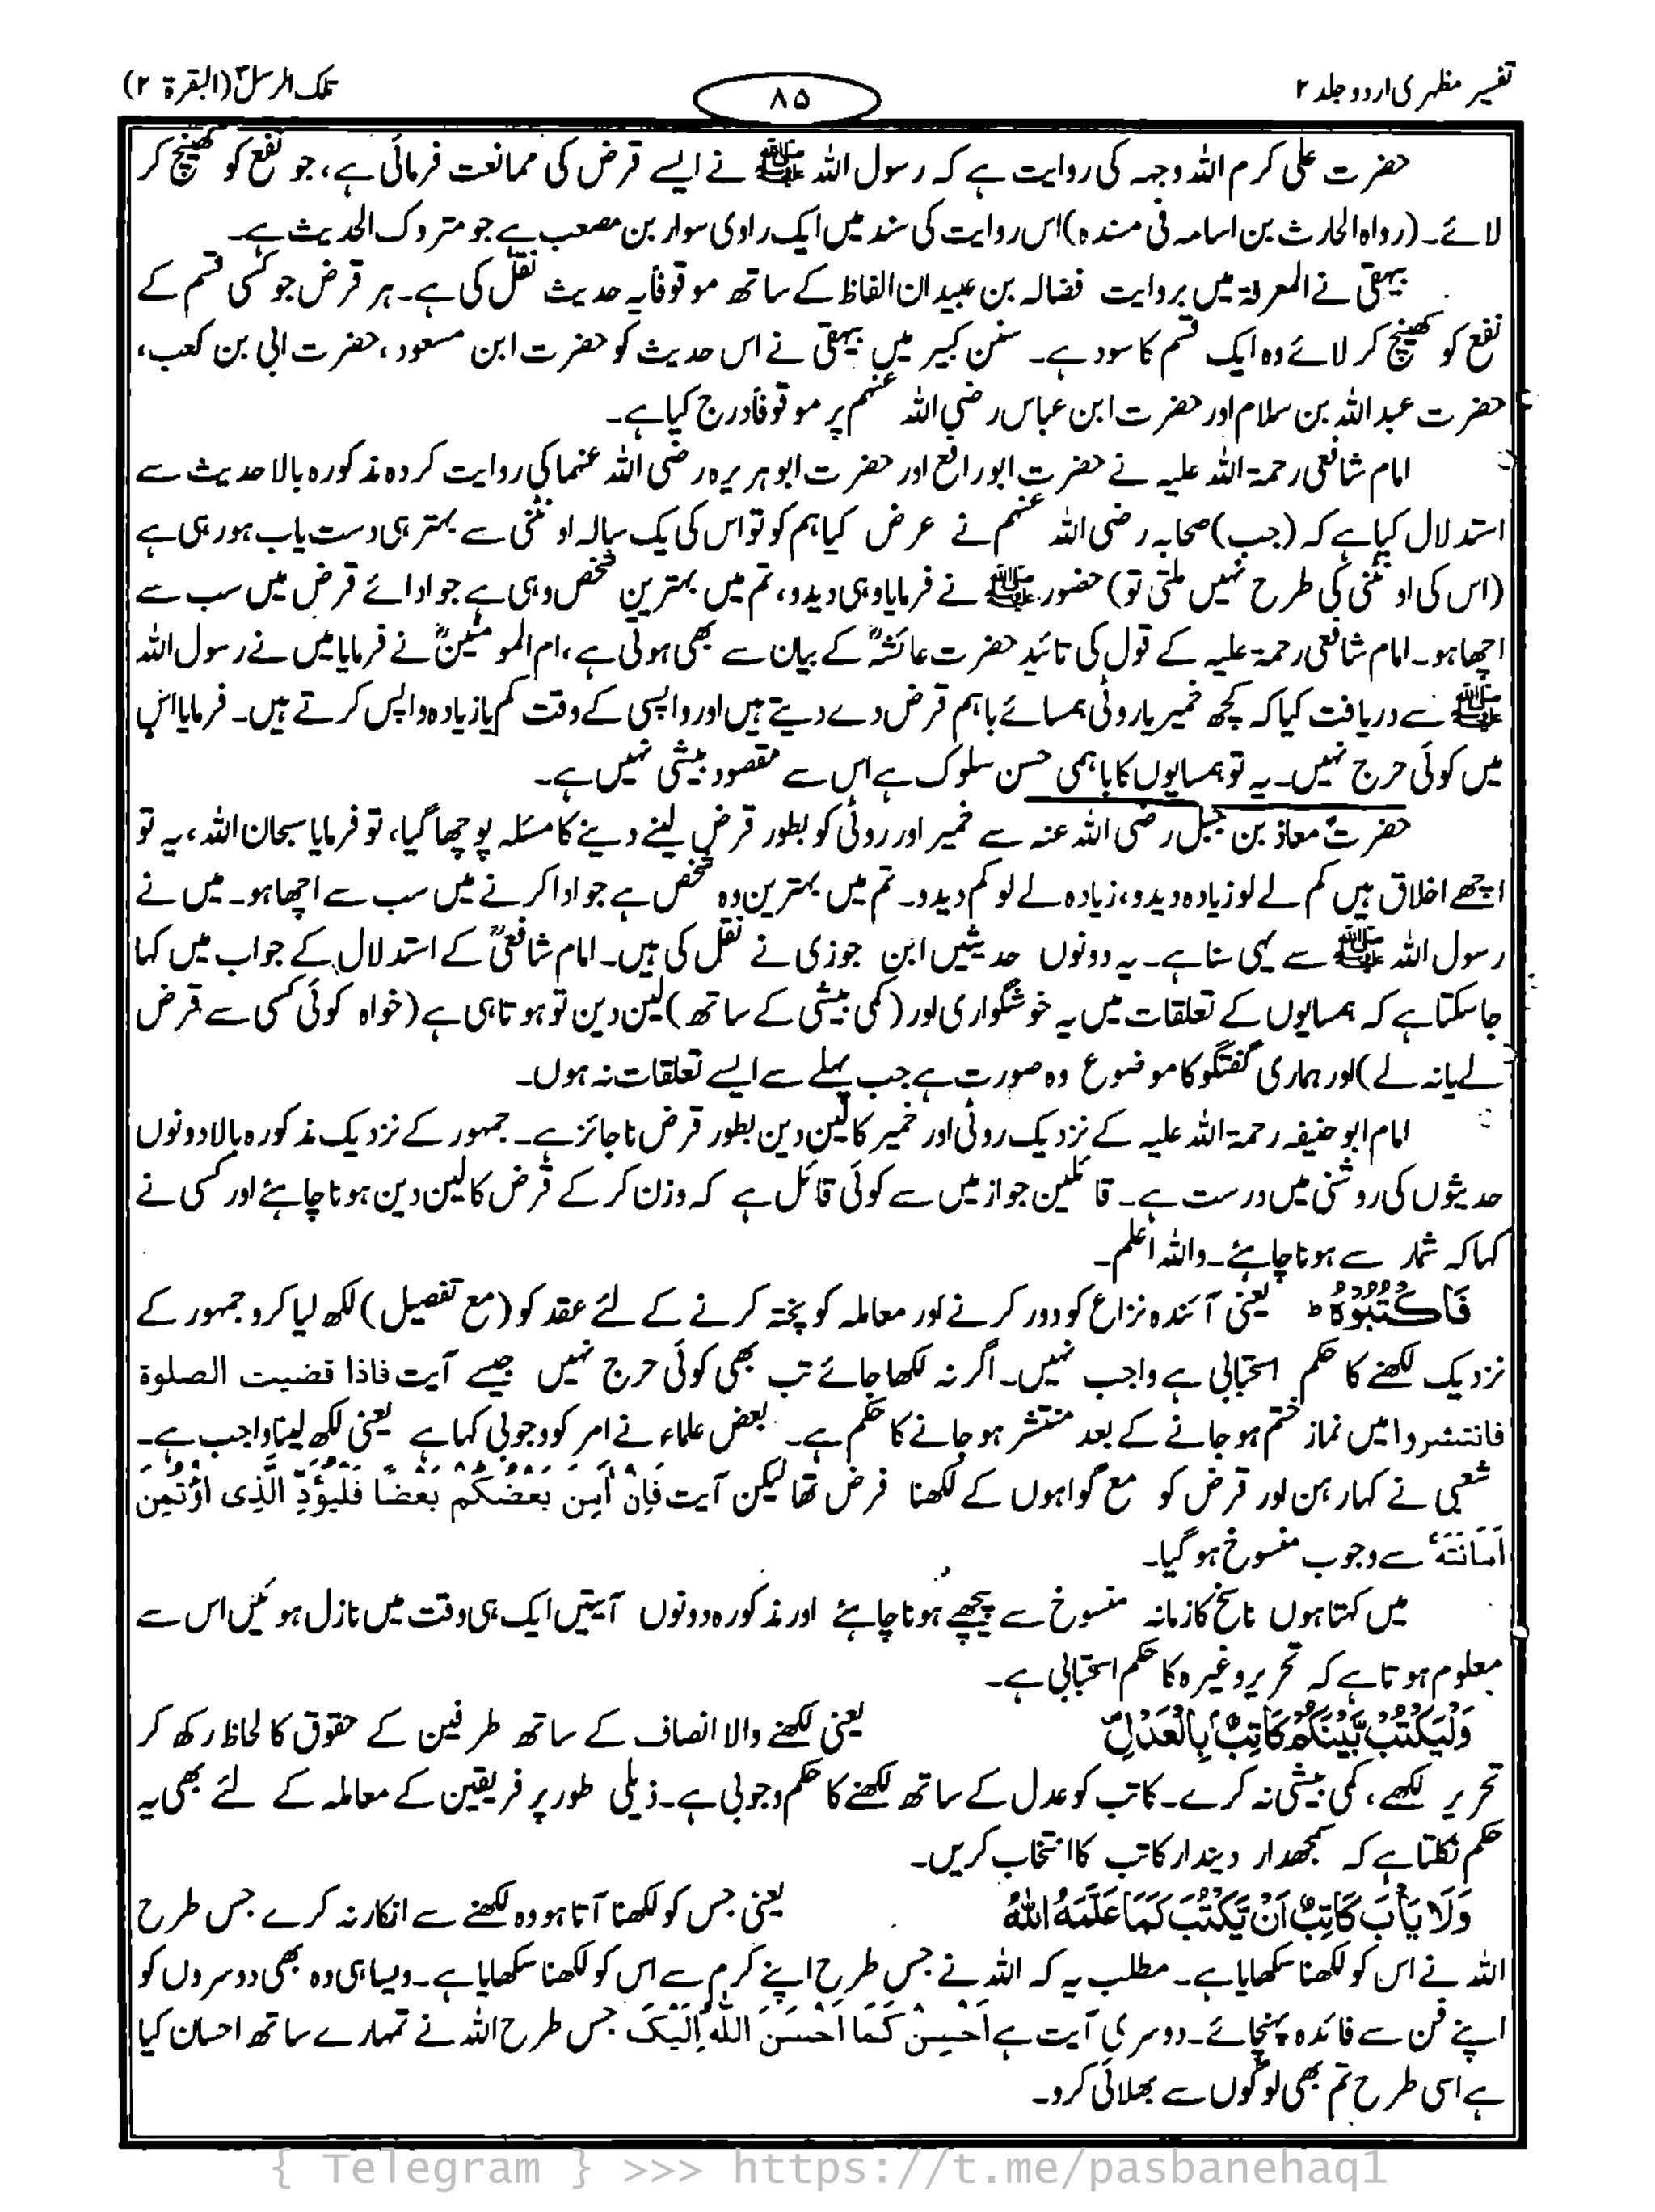 تفسیر مظہری اردو جلد ۲
۸۵
تلک الرسل ۳ (البقرۃ ۲)
حضرت علی کرم اللہ وجہہ کی روایت ہے کہ رسول اللہ ﷺ نے ایسے قرض کی ممانعت فرمائی ہے، جو نفع کو کھینچ کر
لائے۔ (رواہ الحارث بن اسامہ فی مسندہ) اس روایت کی سند میں ایک راوی سوار بن مصعب ہے جو متروک الحدیث ہے۔
بیہقی نے المعرفۃ میں بروایت فضالہ بن عبید ان الفاظ کے ساتھ موقوفاً یہ حدیث نقل کی ہے۔ ہر قرض جو کسی قسم کے
نفع کو کھینچ کر لائے وہ ایک قسم کا سود ہے۔ سنن کبیر میں بیہقی نے اس حدیث کو حضرت ابن مسعود، حضرت ابی بن کعب،
حضرت عبداللہ بن سلام اور حضرت ابن عباس رضی اللہ عنہم پر موقوفاً درج کیا ہے۔
امام شافعی رحمۃ اللہ علیہ نے حضرت ابو رافع اور حضرت ابوہریرہ رضی اللہ عنہما کی روایت کردہ مذکورہ بالا حدیث سے
استدلال کیا ہے کہ (جب) صحابہ رضی اللہ عنہم نے عرض کیا ہم کو تو اس کی یک سالہ اونٹنی سے بہتر ہی دست یاب ہو رہی ہے
(اس کی اونٹنی کی طرح نہیں ملتی تو) حضور ﷺ نے فرمایا وہی دیدو، تم میں بہترین شخص وہی ہے جو ادائے قرض میں سب سے
اچھا ہو۔ امام شافعی رحمۃ علیہ کے قول کی تائید حضرت عائشہؓ کے بیان سے بھی ہوتی ہے، ام المومنینؓ نے فرمایا میں نے رسول اللہ
ﷺ سے دریافت کیا کہ کچھ خمیر یا روٹی ہمسائے باہم قرض دے دیتے ہیں اور واپسی کے وقت کم یا زیادہ واپس کرتے ہیں۔ فرمایا اس
میں کوئی حرج نہیں۔ یہ تو ہمسایوں کا باہمی حسن سلوک ہے اس سے مقصود بیشی نہیں ہے۔
حضرت معاذ بن جبل رضی اللہ عنہ سے خمیر اور روٹی کو بطور قرض لینے دینے کا مسئلہ پوچھا گیا، تو فرمایا سبحان اللہ، یہ تو
اچھے اخلاق ہیں کم لے لو زیادہ دیدو، زیادہ لے لو کم دیدو۔ تم میں بہترین وہ شخص ہے جو ادا کرنے میں سب سے اچھا ہو۔ میں نے
رسول اللہ ﷺ سے یہی سنا ہے۔ یہ دونوں حدیثیں ابن جوزی نے نقل کی ہیں۔ امام شافعیؒ کے استدلال کے جواب میں کہا
جا سکتا ہے کہ ہمسایوں کے تعلقات میں یہ خوشگواری اور (کمی بیشی کے ساتھ) لین دین تو ہوتا ہی ہے (خواہ کوئی کسی سے قرض
لے یا نہ لے) اور ہماری گفتگو کا موضوع وہ صورت ہے جب پہلے سے ایسے تعلقات نہ ہوں۔
امام ابو حنیفہ رحمۃ اللہ علیہ کے نزدیک روٹی اور خمیر کا لین دین بطور قرض ناجائز ہے۔ جمہور کے نزدیک مذکورہ بالا دونوں
حدیثوں کی روشنی میں درست ہے۔ قائلین جواز میں سے کوئی قائل ہے کہ وزن کر کے قرض کا لین دین ہونا چاہئے اور کسی نے
کہا کہ شمار سے ہونا چاہئے۔ واللہ اعلم۔
فَاكْتُبُوْهُ ؕ یعنی آئندہ نزاع کو دور کرنے اور معاملہ کو پختہ کرنے کے لئے عقد کو (مع تفصیل) لکھ لیا کرو جمہور کے
نزدیک لکھنے کا حکم استحبابی ہے واجب نہیں۔ اگر نہ لکھا جائے تب بھی کوئی حرج نہیں جیسے آیت فاذا قضیت الصلوۃ
فانتشروا میں نماز ختم ہو جانے کے بعد منتشر ہو جانے کا حکم ہے۔ بعض علماء نے امر کو وجوبی کہا ہے یعنی لکھ لینا واجب ہے۔
شعبی نے کہا رہن اور قرض کو مع گواہوں کے لکھنا فرض تھا لیکن آیت فَاِنْ اَمِنَ بَعْضُكُمْ بَعْضًا فَلْيُؤَدِّ الَّذِى اؤْتُمِنَ
اَمَانَتَهٗ سے وجوب منسوخ ہو گیا۔
میں کہتا ہوں ناسخ کا زمانہ منسوخ سے پیچھے ہونا چاہئے اور مذکورہ دونوں آیتیں ایک ہی وقت میں نازل ہوئیں اس سے
معلوم ہوتا ہے کہ تحریر وغیرہ کا حکم استحبابی ہے۔
وَلْيَكْتُبْ بَّيْنَكُمْ كَاتِبٌۢ بِالْعَدْلِ یعنی لکھنے والا انصاف کے ساتھ طرفین کے حقوق کا لحاظ رکھ کر
تحریر لکھے، کمی بیشی نہ کرے۔ کاتب کو عدل کے ساتھ لکھنے کا حکم وجوبی ہے۔ ذیلی طور پر فریقین کے معاملہ کے لئے بھی یہ
حکم نکلتا ہے کہ سمجھدار دیندار کاتب کا انتخاب کریں۔
وَلَا يَاْبَ كَاتِبٌ اَنْ يَّكْتُبَ كَمَا عَلَّمَهُ اللّٰهُ یعنی جس کو لکھنا آتا ہو وہ لکھنے سے انکار نہ کرے جس طرح
اللہ نے اس کو لکھنا سکھایا ہے۔ مطلب یہ کہ اللہ نے جس طرح اپنے کرم سے اس کو لکھنا سکھایا ہے۔ ویسا ہی وہ بھی دوسروں کو
اپنے فن سے فائدہ پہنچائے۔ دوسری آیت ہے اَحْسِنْ كَمَا اَحْسَنَ اللّٰهُ اِلَيْكَ جس طرح اللہ نے تمہارے ساتھ احسان کیا
ہے اسی طرح تم بھی لوگوں سے بھلائی کرو۔
{ Telegram } >>> https://t.me/pasbanehaq1